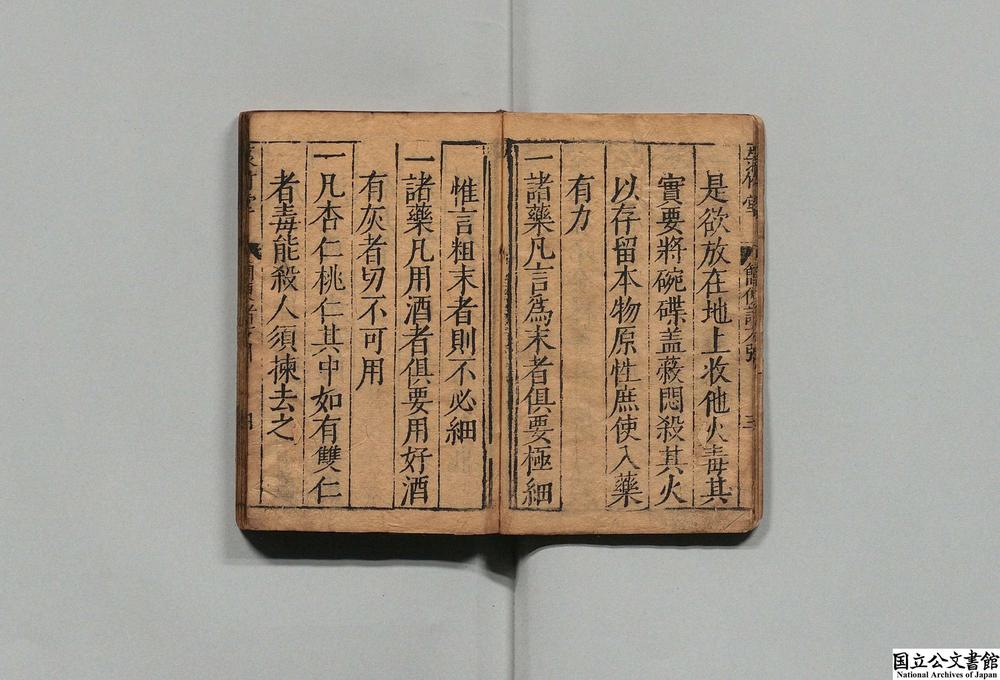 是欲放在地上收他火毒其
實要將碗碟蓋蔽悶殺其火
以存留本物原性庶使入藥
有力
一諸藥凡言爲末者俱要極細
惟言粗末者則不必細
一諸藥凡用酒者俱要用好酒
有灰者切不可用
一凡杏仁桃仁其中如有雙仁
者毒能殺人須揀去之
国立公文書館
National Archives of Japan